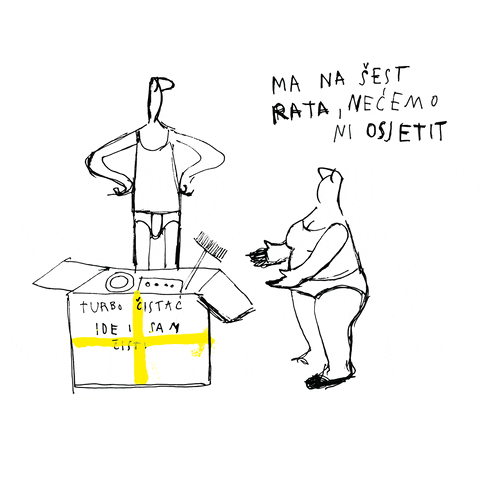 MA NA ŠEST
RATA, NEĆEMO
NI OSJETIT
TURBO ČISTAČ
IDE I SAM
ČISTI